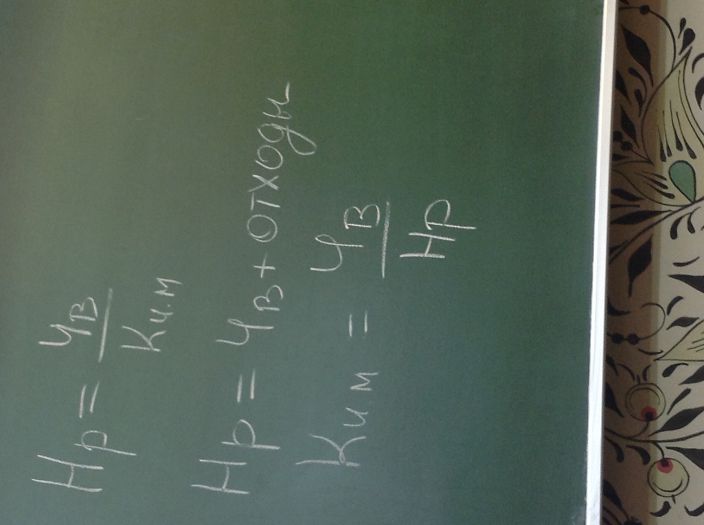 Нр = Чв / Ким
Нр = Чв + отходы
Ким = Чв / Нр